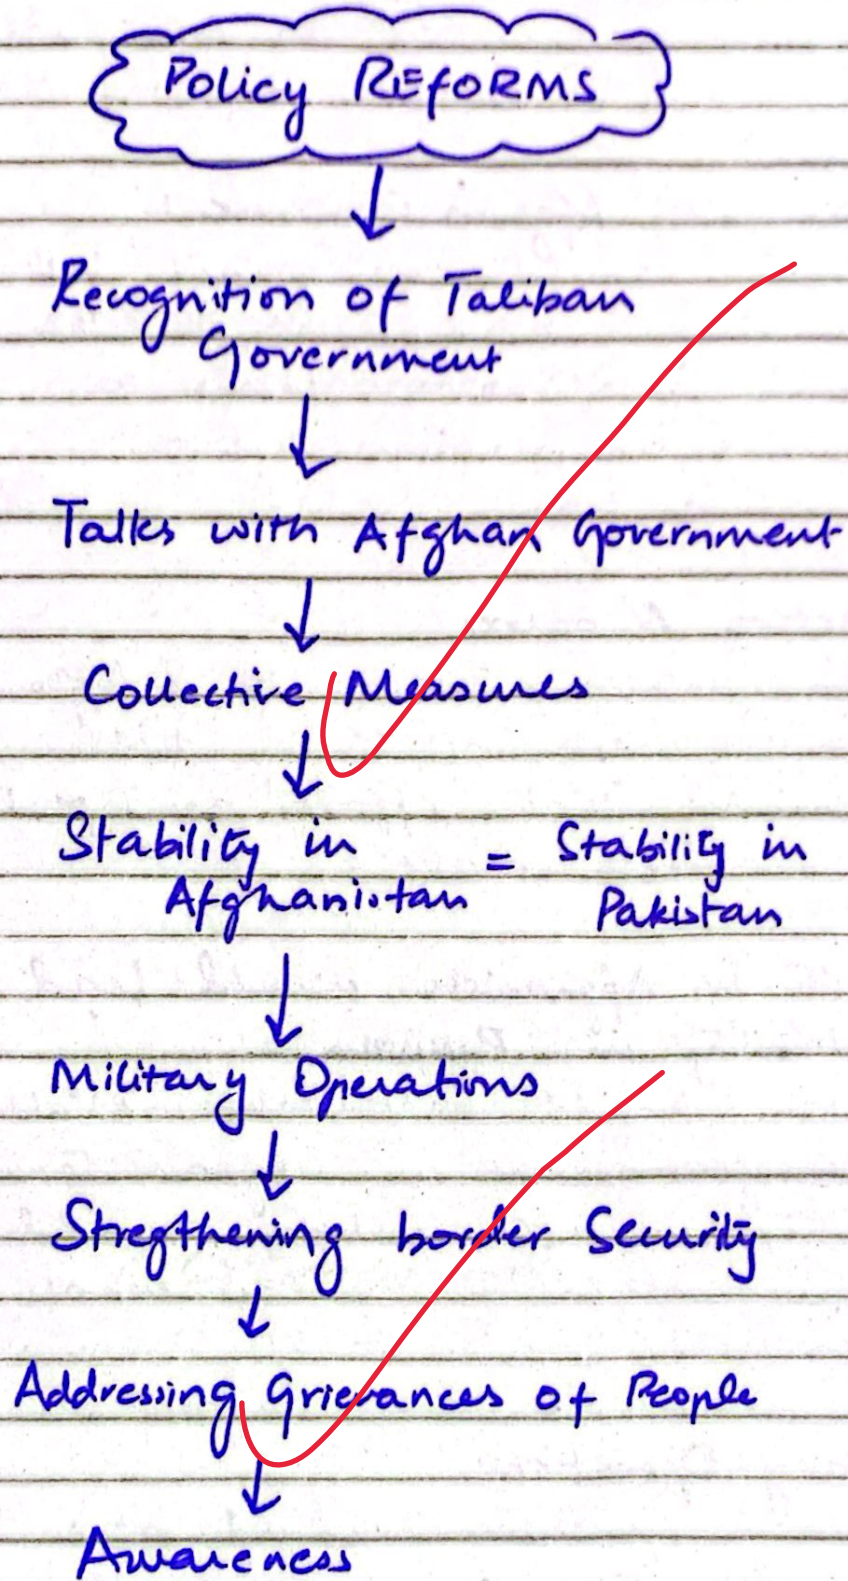 Policy REfORMS
Recognition of Taliban
Government
Talks with Afghan Government
Collective Measures
Stability in = Stability in
Afghanistan Pakistan
Military Operations
Stregthening border Security
Addressing Grievances of People
Awareness